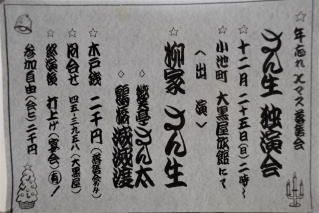 ☆年忘れXマス落語会
さん生 独演会
☆十二月二十五日(日)二時〜
☆小池町 大黒屋旅館にて
〈出演〉
☆柳家 さん生
◇鶯亭さん太
◇鶴橋減滅渡
☆木戸銭 二千円(落語会のみ)
☆問合せ 四五-三九五八(大黒屋)
☆終演後 打上げ(宴会)有!
参加自由(会ヒ)二千円